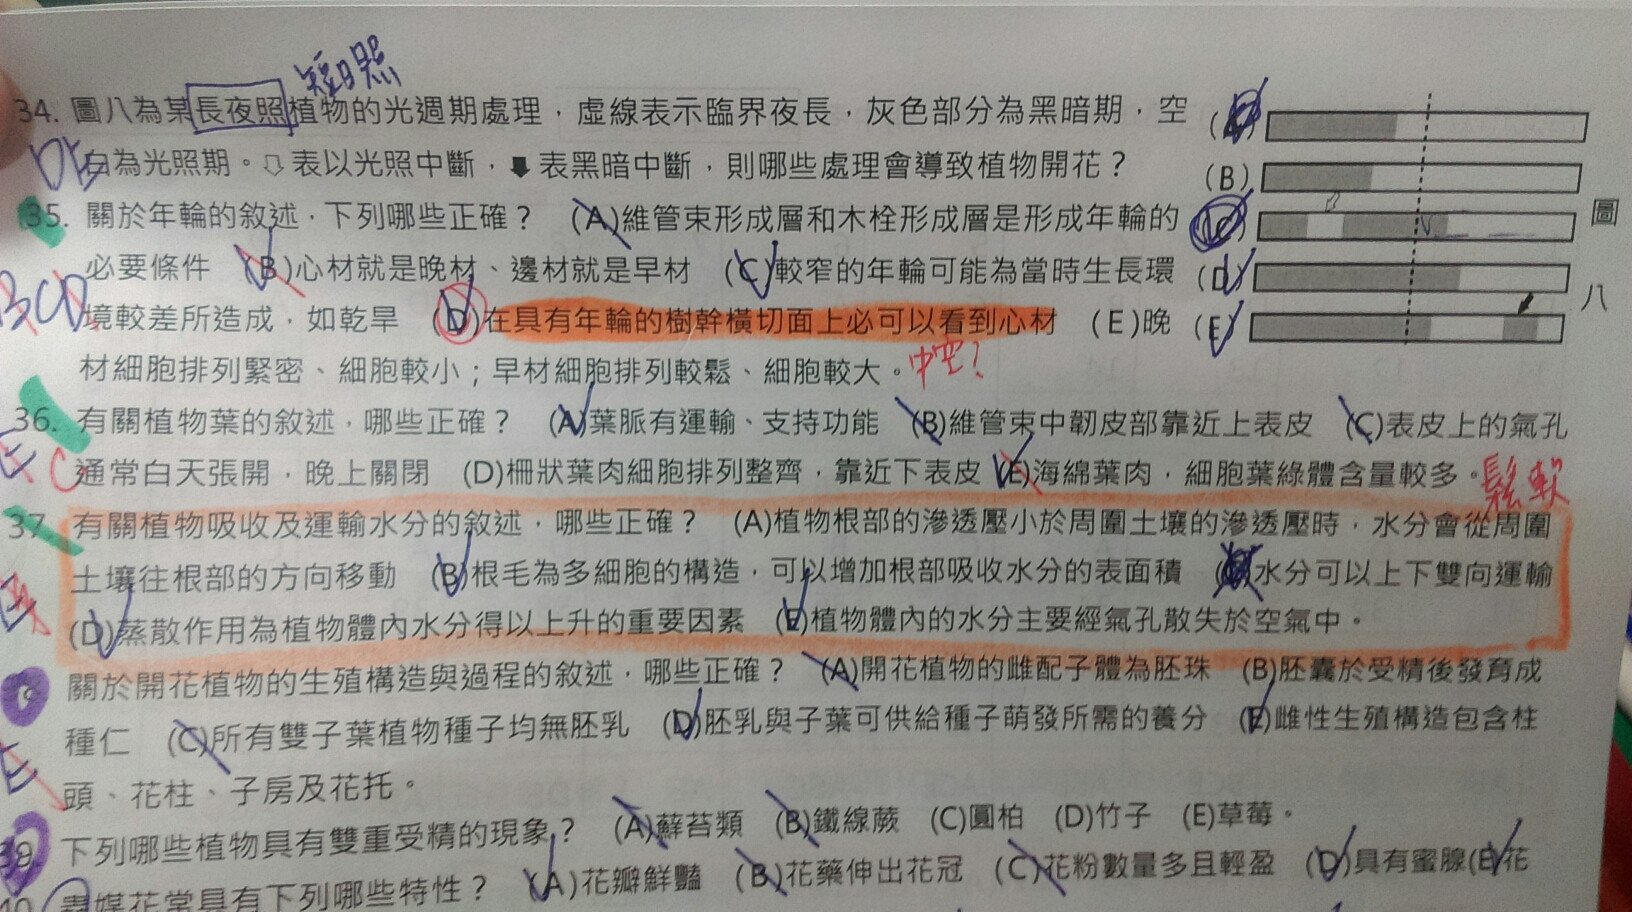 短日照
34. 圖八為某長夜照植物的光週期處理，虛線表示臨界夜長，灰色部分為黑暗期，空
DE
白為光照期。⇩表以光照中斷，⬇表黑暗中斷，則哪些處理會導致植物開花？
(B)
(D)
(E)
圖
八
35. 關於年輪的敘述，下列哪些正確？ (A)維管束形成層和木栓形成層是形成年輪的
必要條件 (B)心材就是晚材、邊材就是早材 (C)較窄的年輪可能為當時生長環
BCD
境較差所造成，如乾旱 (D)在具有年輪的樹幹橫切面上必可以看到心材 (E)晚
材細胞排列緊密、細胞較小；早材細胞排列較鬆、細胞較大。
中空？
36. 有關植物葉的敘述，哪些正確？ (A)葉脈有運輸、支持功能 (B)維管束中韌皮部靠近上表皮 (C)表皮上的氣孔
E C
通常白天張開，晚上關閉 (D)柵狀葉肉細胞排列整齊，靠近下表皮 (E)海綿葉肉，細胞葉綠體含量較多。
鬆軟
37. 有關植物吸收及運輸水分的敘述，哪些正確？ (A)植物根部的滲透壓小於周圍土壤的滲透壓時，水分會從周圍
土壤往根部的方向移動 (B)根毛為多細胞的構造，可以增加根部吸收水分的表面積 水分可以上下雙向運輸
(D)蒸散作用為植物體內水分得以上升的重要因素 (E)植物體內的水分主要經氣孔散失於空氣中。
關於開花植物的生殖構造與過程的敘述，哪些正確？ (A)開花植物的雌配子體為胚珠 (B)胚囊於受精後發育成
種仁 (C)所有雙子葉植物種子均無胚乳 (D)胚乳與子葉可供給種子萌發所需的養分 (E)雌性生殖構造包含柱
E
頭、花柱、子房及花托。
39 下列哪些植物具有雙重受精的現象？ (A)蘚苔類 (B)鐵線蕨 (C)圓柏 (D)竹子 (E)草莓。
40 蟲媒花常具有下列哪些特性？ (A)花瓣鮮豔 (B)花藥伸出花冠 (C)花粉數量多且輕盈 (D)具有蜜腺(E)花